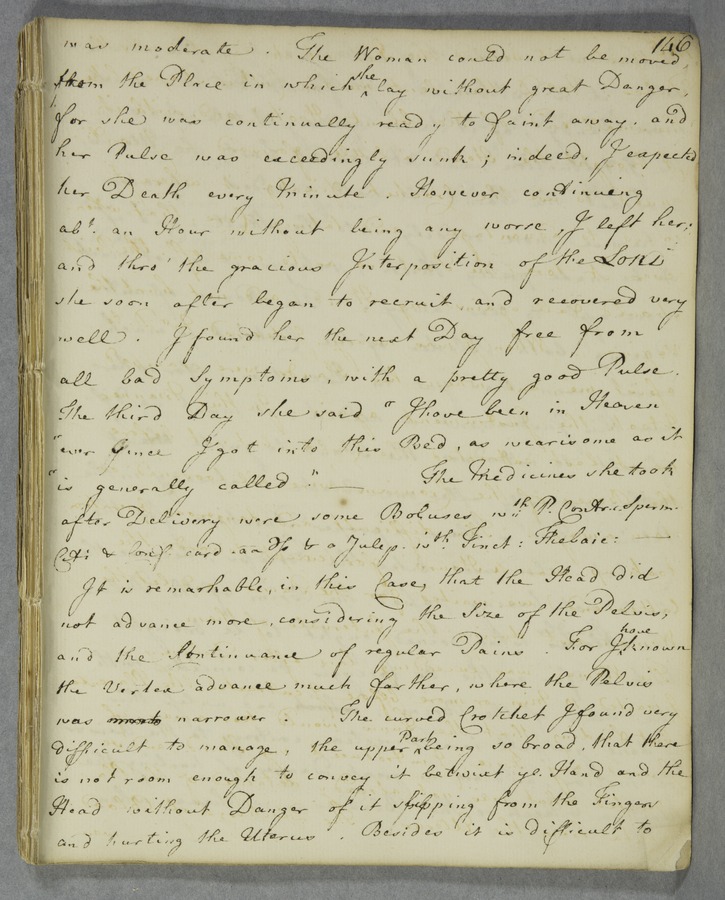 146
was moderate. The Woman could not be moved,
from the Place in which she lay without great Danger,
for she was continually ready to faint away. and
her Pulse was exceedingly sunk; indeed. I expected
her Death every Minute. However continuing
abt. an Hour without being any worse, I left her;
and thro' the gracious Interposition of the LORD
she soon after began to recruit and recovered very
well. I found her the next Day free from
all bad Symptoms, with a pretty good Pulse.
The third Day she said "I have been in Heaven
"ever since I got into this Bed, as wearisome as it
"is generally called". — The Medicines she took
after Delivery were some Boluses wth. P. Contr. c Sperm.
Cti & Conf. card. aa & a Julep. wth. Tinct: Thebaic: —
It is remarkable, in this Case, that the Head did
not advance more, considering the Size of the Pelvis,
and the Continuance of regular Pains. For I have known
the Vertex advance much farther, where the Pelvis
was narrower. The curved Crotchet I found very
difficult to manage, the upper Part being so broad, that there
is not room enough to convey it betwixt ye. Hand and the
Head without Danger of it slipping from the Fingers
and hurting the Uterus. Besides it is difficult to